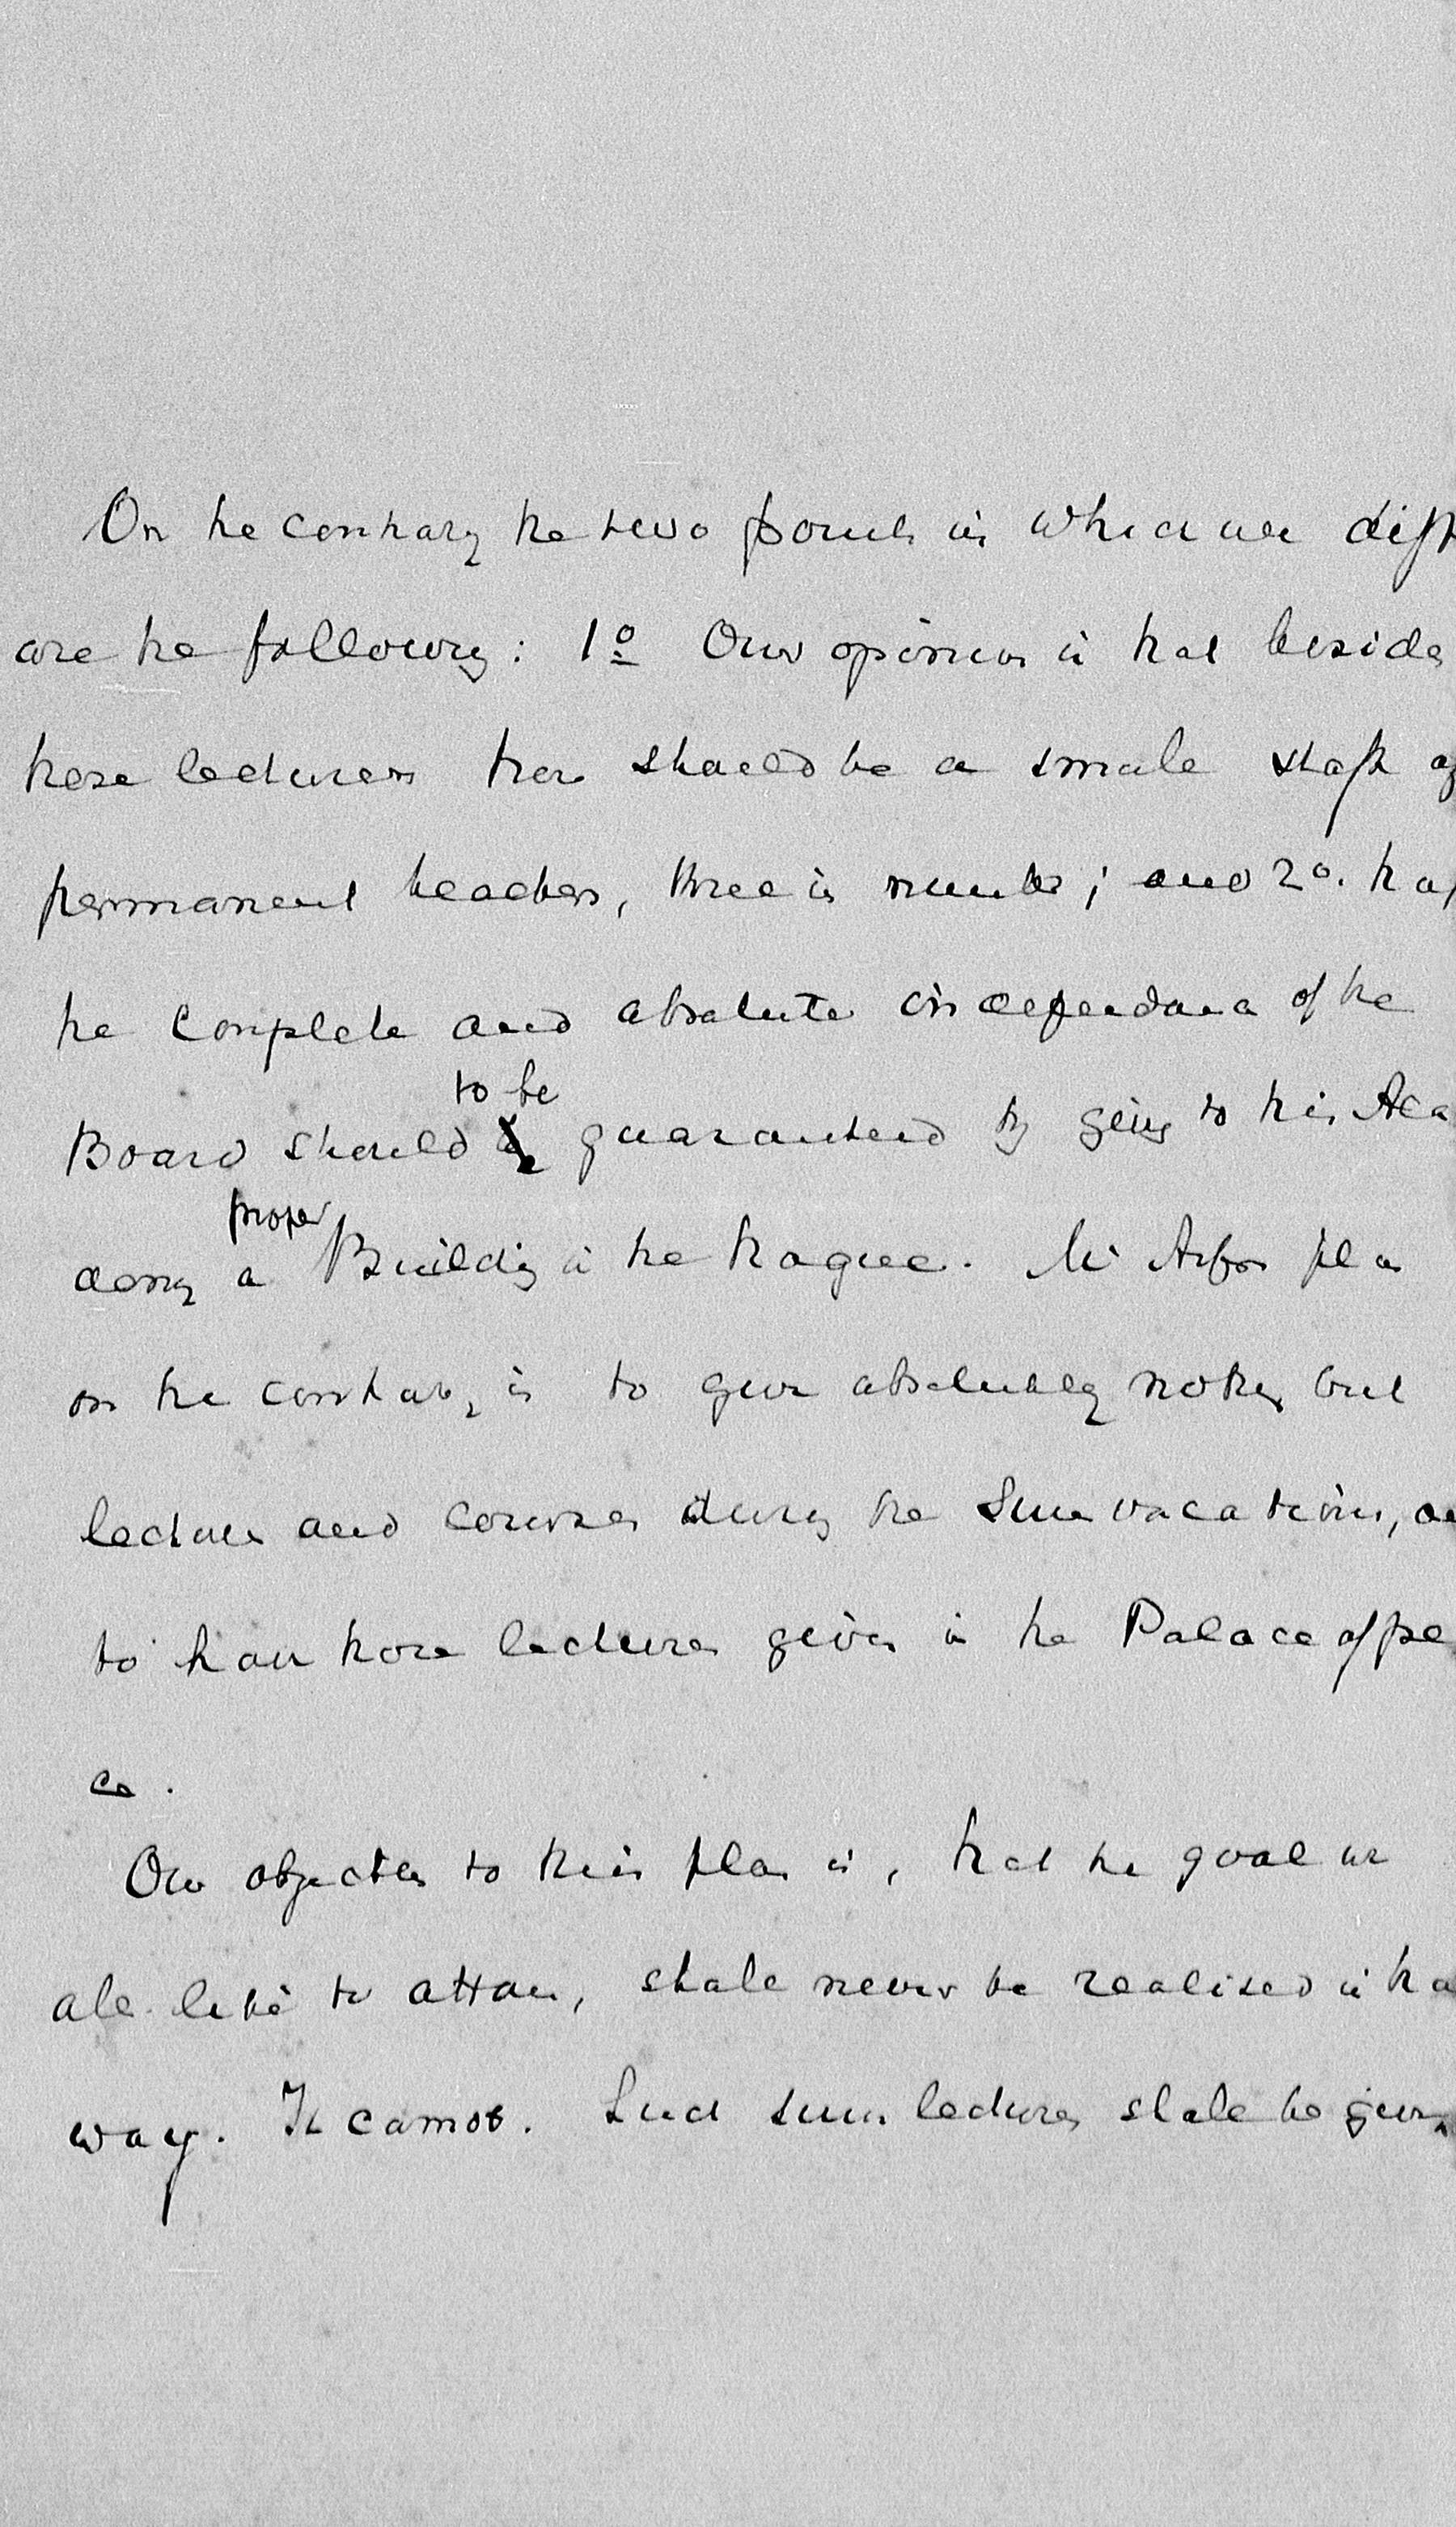 On the contrary the two points in which we diff
are the following: 1o Our opinion is that beside
these lecturers there should be a small staff of
permanent teachers, three in number; and 2o. that
the complete and absolute independance of the
to be
Board should guaranteed by giving to this Aca
proper
demy a Building in the hague. Mr plan
on the contrary is to give absolutely nothing but
lectures and courses during the vacations, and
to have those lectures given in the Palace of pea
ce.
Our objection to this plan is, that the goal we
all like to attain, shall never be realised in that
way. It cannot. Such lectures shall be given